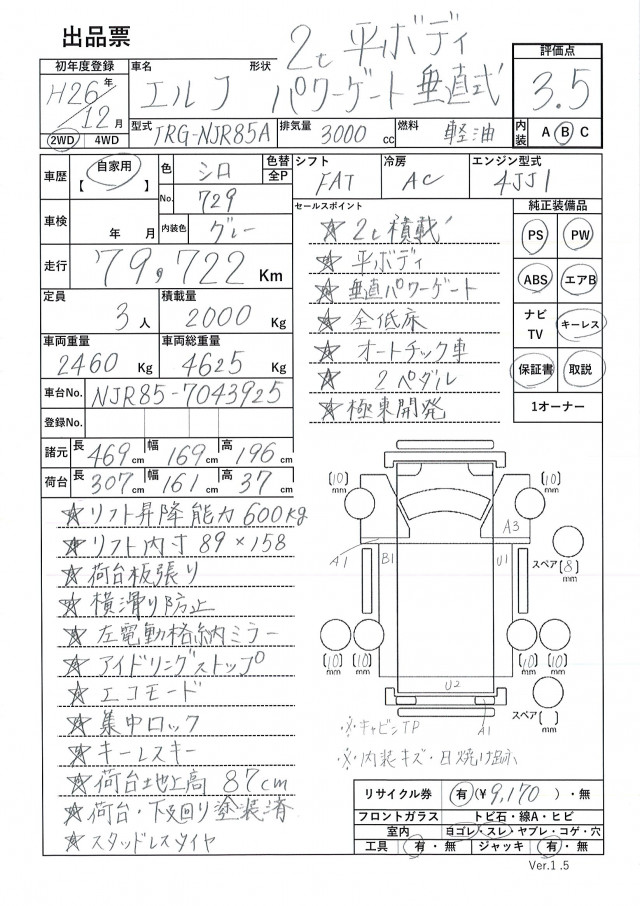 出品票
2t 平ボディ
パワーゲート 垂直式
初年度登録 車名 形状 評価点
H26年 12月 エルフ 3.5
2WD 4WD 型式 TRG-NJR85A 排気量 3000 cc 燃料 軽油 内装 A B C
車歴 自家用 【 】 色 シロ 色替 全P シフト 冷房 エンジン型式
No. 729 FAT AC 4JJ1
車検 年 月 内装色 グレー
走行 79,722 Km
定員 積載量
3人 2000 Kg
車両重量 車両総重量
2460 Kg 4625 Kg
車台No. NJR85-7043925
登録No.
諸元 長 469cm 幅 169cm 高 196cm
荷台 長 307cm 幅 161cm 高 37cm
セールスポイント
☆ 2t積載
☆ 平ボディ
☆ 垂直パワーゲート
☆ 全低床
☆ オートチック車
☆ 2ペダル
☆ 極東開発
純正装備品
PS PW
ABS エアB
ナビ TV キーレス
保証書 取説
1オーナー
☆リフト昇降能力600kg
☆リフト内寸89×158
☆荷台板張り
☆横滑り防止
☆左電動格納ミラー
☆アイドリングストップ
☆エコモード
☆集中ロック
☆キーレスキー
☆荷台地上高 87cm
☆荷台・下廻り塗装済
☆スタッドレスタイヤ
(10) mm (10) mm
A3
A1 B1 U1
スペア (8) mm
(10) mm (10) mm (10) mm (10) mm
U2
A1
スペア ( ) mm
※キャビンTP
※内装キズ・日焼け跡
リサイクル券 有 (¥9,170)・無
フロントガラス トビ石・線A・ヒビ
室内 ヨゴレ・スレ・ヤブレ・コゲ・穴
工具 有・無 ジャッキ 有・無
Ver.1.5